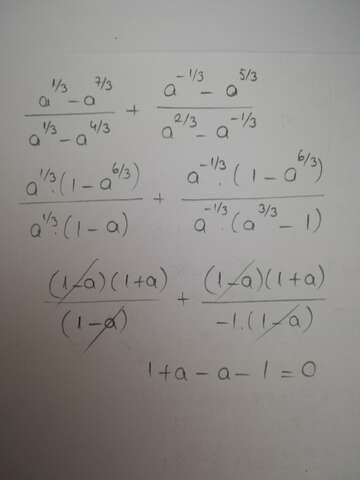 (a^{1/3} - a^{7/3})/(a^{1/3} - a^{4/3}) + (a^{-1/3} - a^{5/3})/(a^{2/3} - a^{-1/3})
(a^{1/3}·(1 - a^{6/3}))/(a^{1/3}·(1 - a)) + (a^{-1/3}·(1 - a^{6/3}))/(a^{-1/3}·(a^{3/3} - 1))
((1-a)(1+a))/(1-a) + ((1-a)(1+a))/(-1.(1-a))
1+a-a-1=0